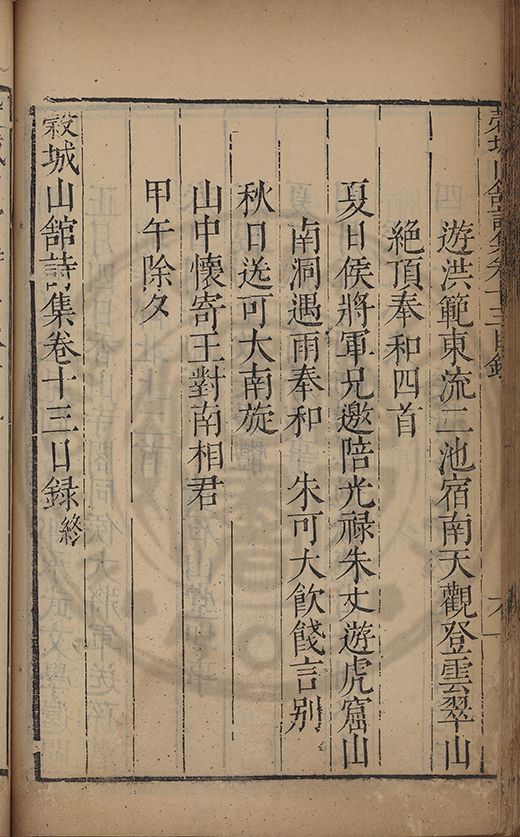 穀城山館詩集卷十三目錄
遊洪範東流二池宿南天觀登雲翠山
絶頂奉和四首
夏日侯將軍兄邀陪光祿朱丈遊虎窟山
南洞遇雨奉和　朱可大飲餞言別
秋日送可大南旋
山中懷寄王對南相君
甲午除夕
穀城山館詩集卷十三目録終